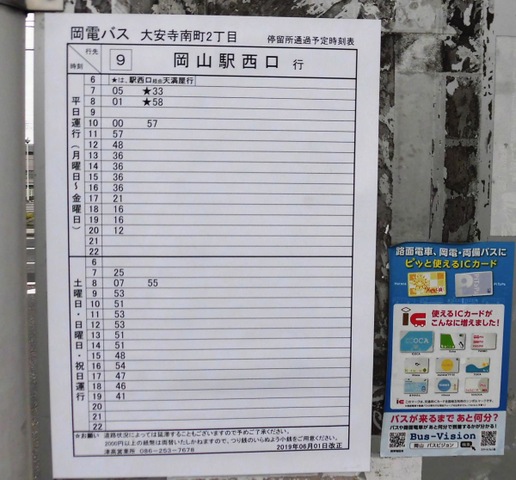 岡電バス 大安寺南町2丁目 停留所通過予定時刻表
行先 時刻 9 岡山駅西口 行
平日運行(月曜日~金曜日)
6 ★は、駅西口経由天満屋行
7 05 ★33
8 01 ★58
9
10 00 57
11 57
12 48
13 36
14 36
15 36
16 36
17 21
18 16
19 16
20 12
21
22
土曜日・日曜日・祝日運行
6
7 25
8 07 55
9 53
10 51
11 53
12 53
13 51
14 51
15 48
16 54
17 47
18 46
19 41
20
21
22
★お願い 道路状況によっては延滞することもございますので予めご了承ください。
2000円以上の紙幣は両替いたしかねますので、つり銭のいらぬよう小銭をご用意ください。
津高営業所 086-253-7678 2019年06月01日改正
路面電車、岡電・両備バスに
ピッと使えるICカード
使えるICカードが
こんなに増えました!
ICOCA
バスが来るまで あと何分?
バスや路面電車が あと何分で到着するかが分かる!
Bus-Vision
岡山 バスビジョン